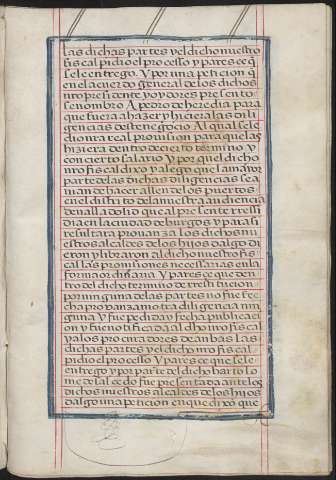 las dichas partes y el dicho nuestro
fiscal pidio el proçesso y pareçe q̃
se le entrego. Y por una petiçion q̃
en el acuerdo general de los dichos
n̄ro presidente y oydores presento
se nombro A pedro de heredia para
que fuera a hazer y hiziera las dili
gençias deste negoçio. Al qual se le
dio n̄ra real prouision para que las
hiziera dentro de çierto termino y
con çierto salario. Y por que el dicho
n̄ro fiscal dixo y alego que la mayor
parte de las dichas diligençias se a
uian de hazer allende los puertos
en el distrito de la nuestra audiençia
de ualladolid que al presente rressi
dia en la çiudad de burgos y para si
resultara prouanza los dichos nu
estros alcaldes de los hijos dalgo di
eron y libraron al dicho nuestro fis
cal las prouisiones neçessarias en la
forma ordinaria. Y pareçe que den
tro del dicho termino de rrestituçion
por ninguna de las partes no fue fe
cha prouanza ni otra diligençia nin
guna. Y fue pedida y fecha publicaçi
on y fue notificada al dho n̄ro fiscal
y a los procuradores de anbas las
dichas partes y el dicho n̄ro fiscal
pidio el proçesso. Y pareçe que se le
entrego y por parte del dicho barto lo
me de salçedo fue presentada ante los
dichos nuestros alcaldes de los hijos
dalgo una petiçion en que dixo que